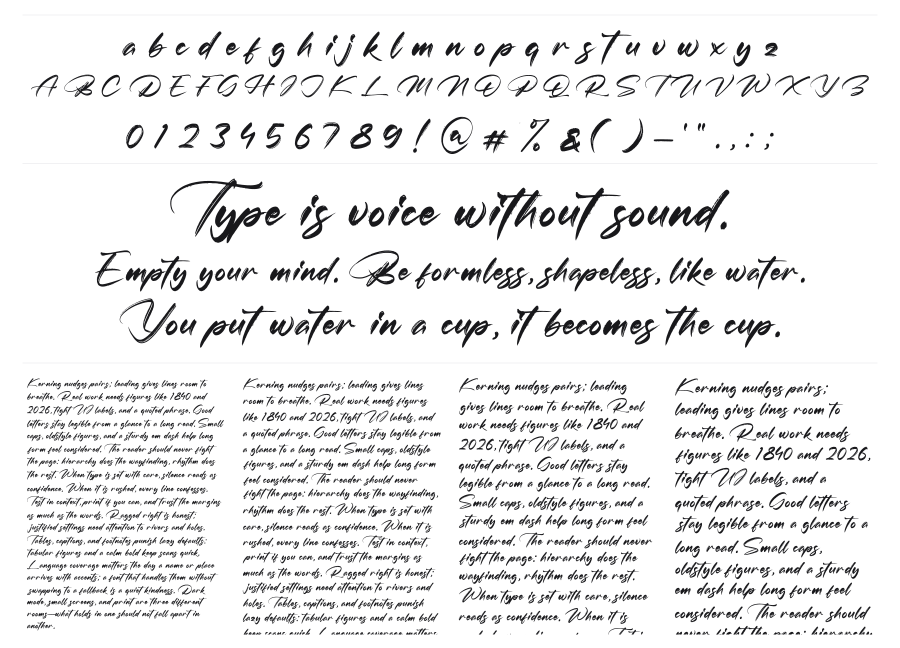 a b c d e f g h i j k l m n o p q r s t u v w x y z
A B C D E F G H I J K L M N O P Q R S T U V W X Y Z
0 1 2 3 4 5 6 7 8 9 ! @ # % & ( ) – ' " . , : ;
Type is voice without sound.
Empty your mind. Be formless, shapeless, like water.
You put water in a cup, it becomes the cup.
Kerning nudges pairs; leading gives lines room to
breathe. Real work needs figures like 1840 and
2026, tight UI labels, and a quoted phrase. Good
letters stay legible from a glance to a long read. Small
caps, oldstyle figures, and a sturdy em dash help long
form feel considered. The reader should never fight
the page: hierarchy does the wayfinding, rhythm does
the rest. When type is set with care, silence reads as
confidence. When it is rushed, every line confesses.
Test in context, print if you can, and trust the margins
as much as the words. Ragged right is honest;
justified settings need attention to rivers and holes.
Tables, captions, and footnotes punish lazy defaults;
tabular figures and a calm bold keep scans quick.
Language coverage matters the day a name or place
arrives with accents; a font that handles them without
swapping to a fallback is a quiet kindness. Dark
mode, small screens, and print are three different
rooms—what holds in one should not fall apart in
another.
Kerning nudges pairs; leading gives lines
room to breathe. Real work needs figures
like 1840 and 2026, tight UI labels, and
a quoted phrase. Good letters stay legible from
a glance to a long read. Small caps, oldstyle
figures, and a sturdy em dash help long form
feel considered. The reader should never
fight the page: hierarchy does the wayfinding,
rhythm does the rest. When type is set with
care, silence reads as confidence. When it is
rushed, every line confesses. Test in context,
print if you can, and trust the margins as
much as the words. Ragged right is honest;
justified settings need attention to rivers and
holes. Tables, captions, and footnotes punish
lazy defaults; tabular figures and a calm bold
keep scans quick. Language coverage matters
Kerning nudges pairs; leading
gives lines room to breathe. Real
work needs figures like 1840 and
2026, tight UI labels, and a
quoted phrase. Good letters stay
legible from a glance to a long read.
Small caps, oldstyle figures, and a
sturdy em dash help long form feel
considered. The reader should never
fight the page: hierarchy does the
wayfinding, rhythm does the rest.
When type is set with care, silence
reads as confidence. When it is
Kerning nudges pairs;
leading gives lines room to
breathe. Real work needs
figures like 1840 and 2026,
tight UI labels, and a
quoted phrase. Good letters
stay legible from a glance to a
long read. Small caps,
oldstyle figures, and a sturdy
em dash help long form feel
considered. The reader should
never fight the page: hierarchy